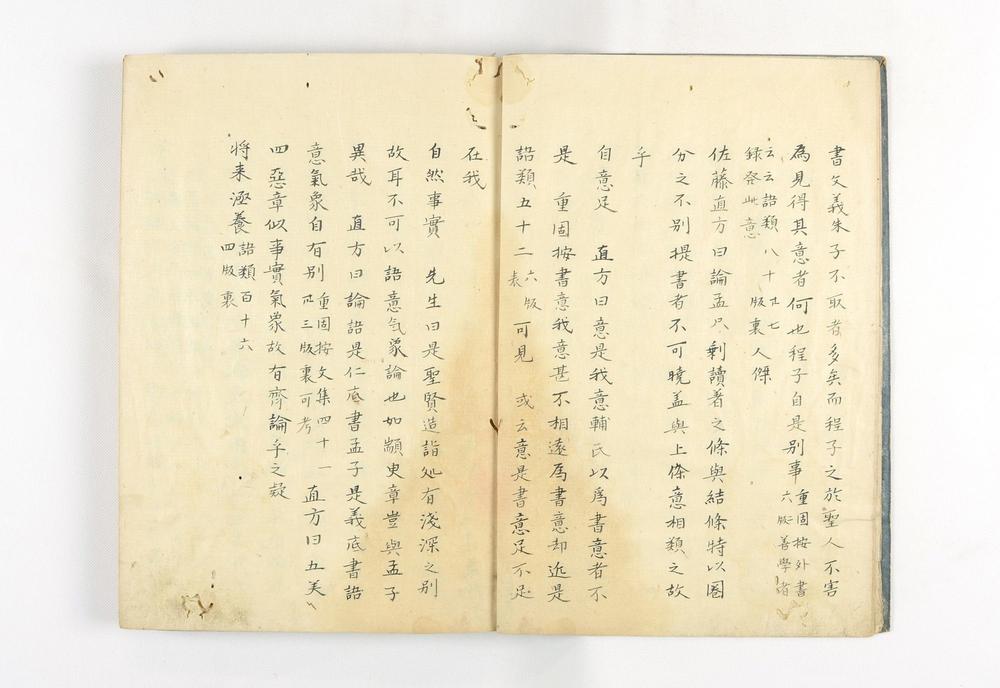 書文義朱子不取者多矣而程子之於聖人不害
為見得其意者何也程子自是別事重固按外書
六版善學者
云云語類八十九七
版裏人傑
録発此意
佐藤直方曰論孟只剰讀著之條與結條特以圏
分之不別提書者不可曉盖與上條意相類之故
乎
自意足 直方曰意是我意輔氏以為書意者不
是 重固按書意我意甚不相遠為書意却近是
語類五十二六版
表可見 或云意是書意足不足
在我
自然事實 先生曰是聖賢造詣処有浅深之別
故耳不可以語意気象論也如顓臾章豈與孟子
異哉 直方曰論語是仁底書孟子是義底書語
意氣象自有別重固按文集四十一
卅三版裏可考 直方曰五美
四惡章似事實氣象故有齊論乎之疑
将来涵養語類百十六
四版裏